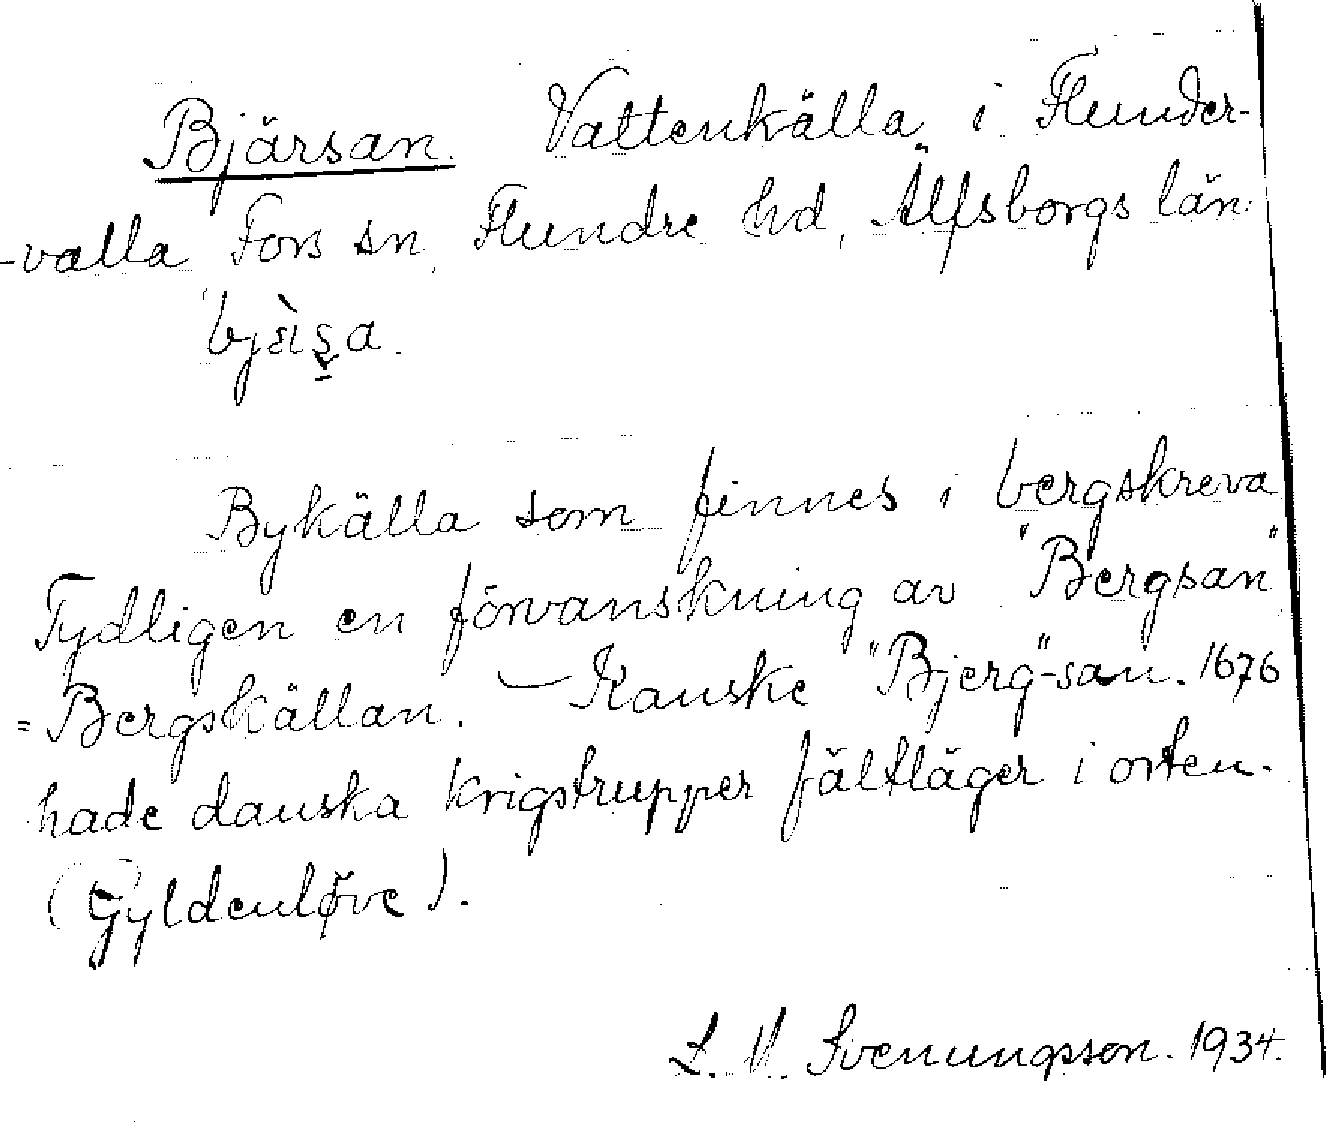 Bjärsan. Vattenkälla i Flunder-
-valla Fors sn, Flundre hd, Älfsborgs län.
Bykälla som finnes i bergskreva
Tydligen en förvanskning av "Bergsan"
= Bergskällan. — Kanske "Bjerg"-san. 1676
hade danska krigstrupper fältläger i orten.
(Gyldenløve).
L. M. Svenungsson. 1934.